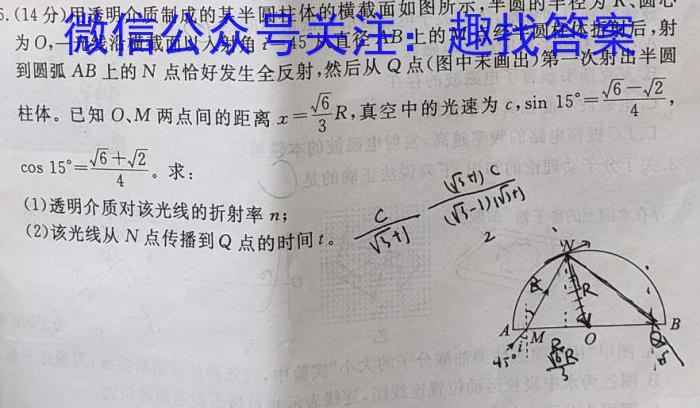 6.(14分)用透明介质制成的某半圆柱体的横截面如图所示,半圆的半径为R、圆心
为O,一光线沿横截面以入射角i=45°从直径AB上的M点经半圆柱体折射后,射
微信公众号关注:趣找答案
到圆弧AB上的N点恰好发生全反射,然后从Q点(图中未画出)第一次射出半圆
柱体。已知O、M两点间的距离 x=√6/3R,真空中的光速为c,sin 15°=(√6-√2)/4,
cos 15°=(√6+√2)/4。求:
(1)透明介质对该光线的折射率n;
(2)该光线从N点传播到Q点的时间t。
c/(√3+1)
(√3+1)c/(√3-1)(√3+1)
2
N
R
A M O Q B
i
45°
√6R/3